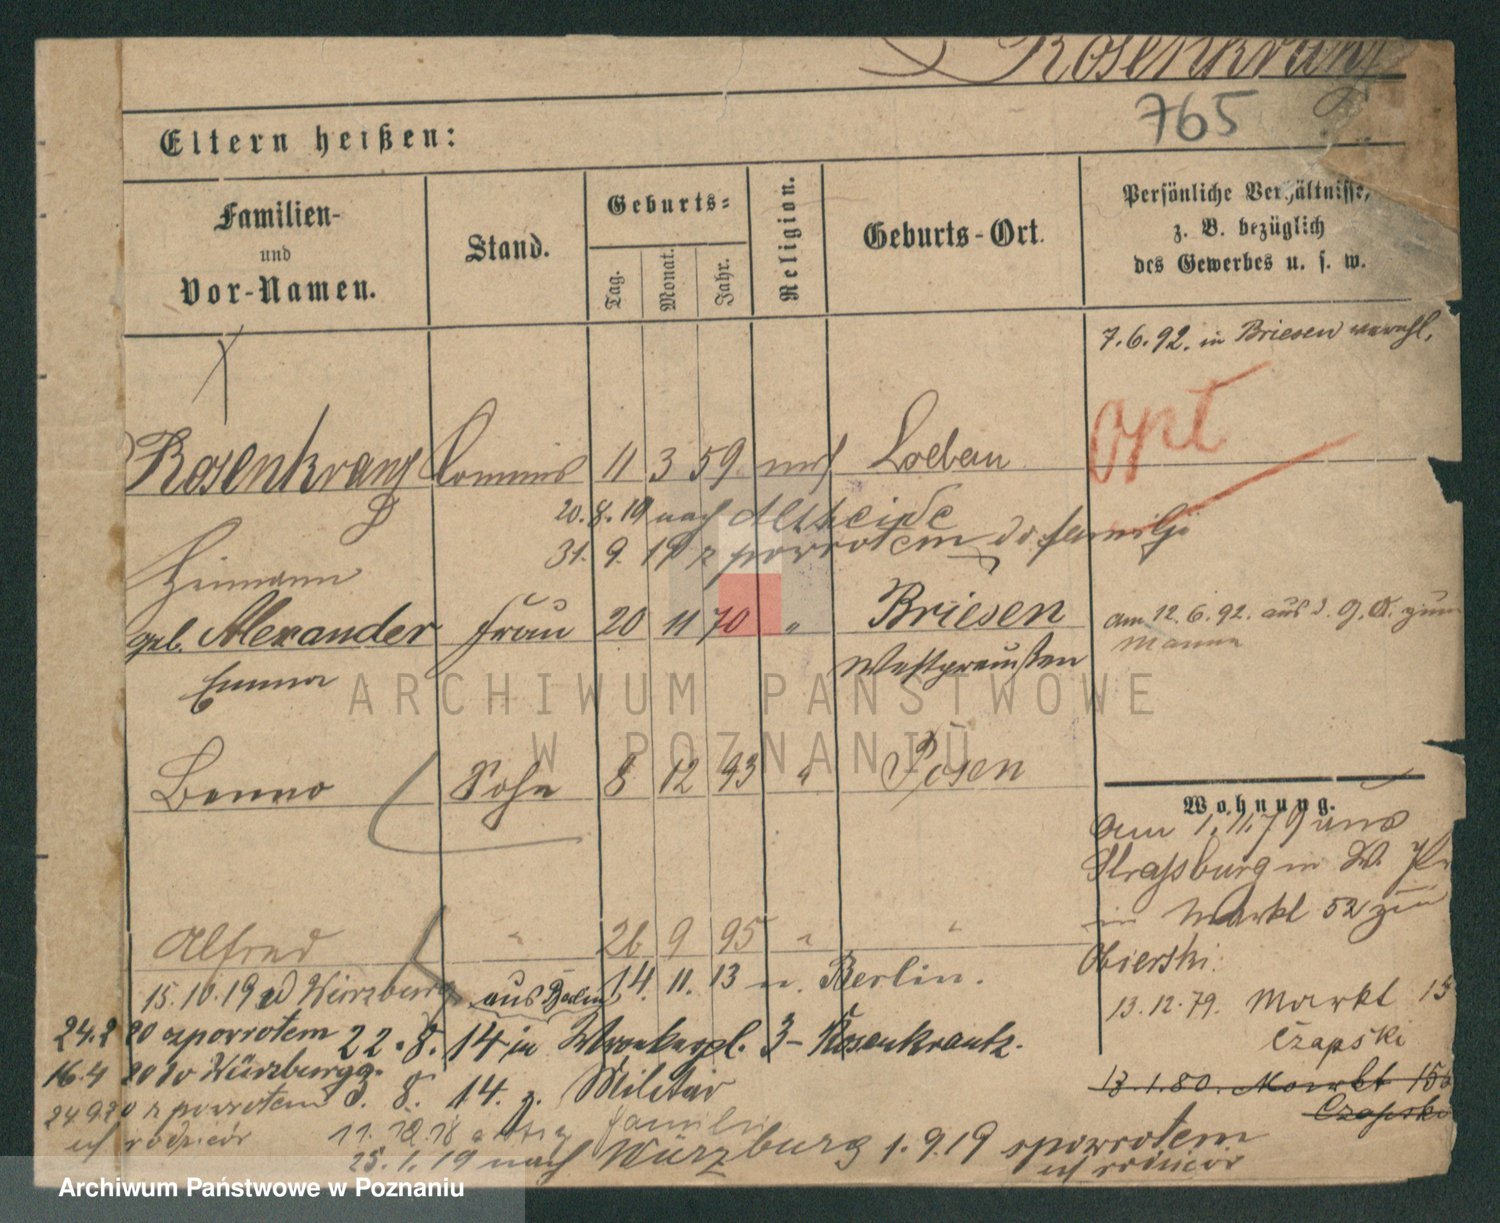 Rosenkranz
765
Eltern heißen:
Familien-
und
Vor-Namen.
Stand.
Geburts-
Tag.
Monat.
Jahr.
Religion.
Geburts-Ort.
Persönliche Verhältnisse,
z. B. bezüglich
des Gewerbes u. s. w.
7. 6. 92. in Briesen verehl.
opt
Rosenkranz Commis 11 3 59 mos Loebau
20. 8. 19 nach Altheide
31. 9. 19 z powrotem do familji
Heimann
geb. Alexander Frau 20 11 70 " Briesen
Westpreußen
Emma
am 12. 6. 92. aus d. O. zum
Manne
Benno Sohn 8 12 93 " Posen
Wohnung.
am 1. 11. 79 aus
Strassburg in W. Pr
in Markt 52 zu
Obierski.
13. 12. 79. Markt 15
Czapski
13. 1. 80. Markt 15
Czapski
Alfred " 26 9 95 " "
15. 10. 19 Würzburg aus Berlin 14. 11. 13 n. Berlin.
24. 2 20 zpowrotem 22. 8. 14 in 3 - Rosenkrantz.
16. 4 20 do Würzburg
8. 14. z. Militär
24 9 20 z powrotem
uf rodziców
11. 12. 18 familie
25. 1. 19 nach Würzburg 1. 9. 19 spowrotem
uf rodziców
ARCHIWUM PAŃSTWOWE
W POZNANIU
Archiwum Państwowe w Poznaniu